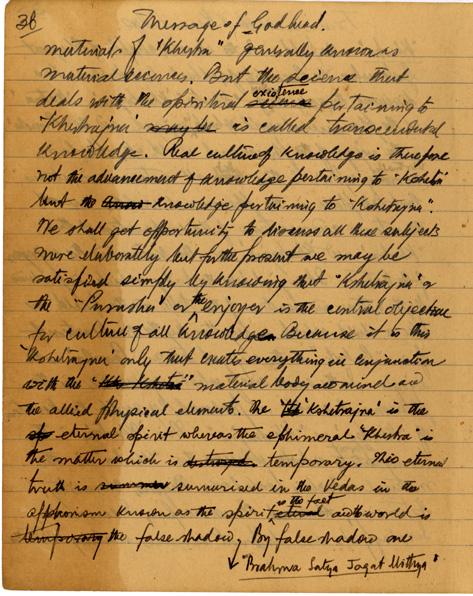 36
Message of Godhead.
materials of "Khestra" generally known as
material sciences. But the science that
deals with the spiritual existence pertaining to
'Khetrajna' may be is called transcendental
knowledge. Real culture of knowledge is therefore
not the advancement of knowledge pertaining to "Kshetra"
but the knowledge pertaining to "Kshetrajna".
We shall get opportunity to discuss all these subjects
more elaborately but for the present we may be
satisfied simply by knowing that "Kshetrajna" or
the "Purusha" or the enjoyer is the central objective
for culture of all knowledge. Because it is this
'Kshetrajna' only that create everything in conjunction
with the material body and mind and
the allied physical elements. The 'Kshetrajna' is the
eternal spirit whereas the ephimeral 'Khestra' is
the matter which is temporary. This eternal
truth is summarised in the Vedas in the
aphorism known as the spirit is the fact and world is
temporary the false shadow. By false shadow one
"Brahma Satya Jagat Mithya"